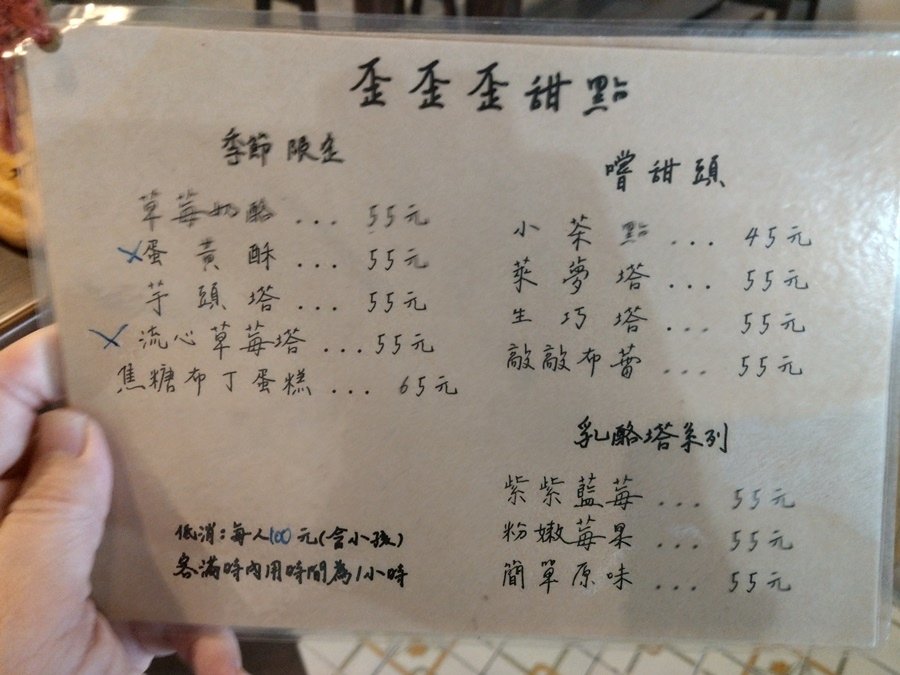 歪歪歪甜點
季節限定
草莓奶酪 ... 55元
×蛋黃酥 ... 55元
芋頭塔 ... 55元
×流心草莓塔 ... 55元
焦糖布丁蛋糕 ... 65元
低消：每人100元(含小孩)
客滿時內用時間為1小時
嚐甜頭
小茶點 ... 45元
萊夢塔 ... 55元
生巧塔 ... 55元
敲敲布蕾 ... 55元
乳酪塔系列
紫紫藍莓 ... 55元
粉嫩莓果 ... 55元
簡單原味 ... 55元